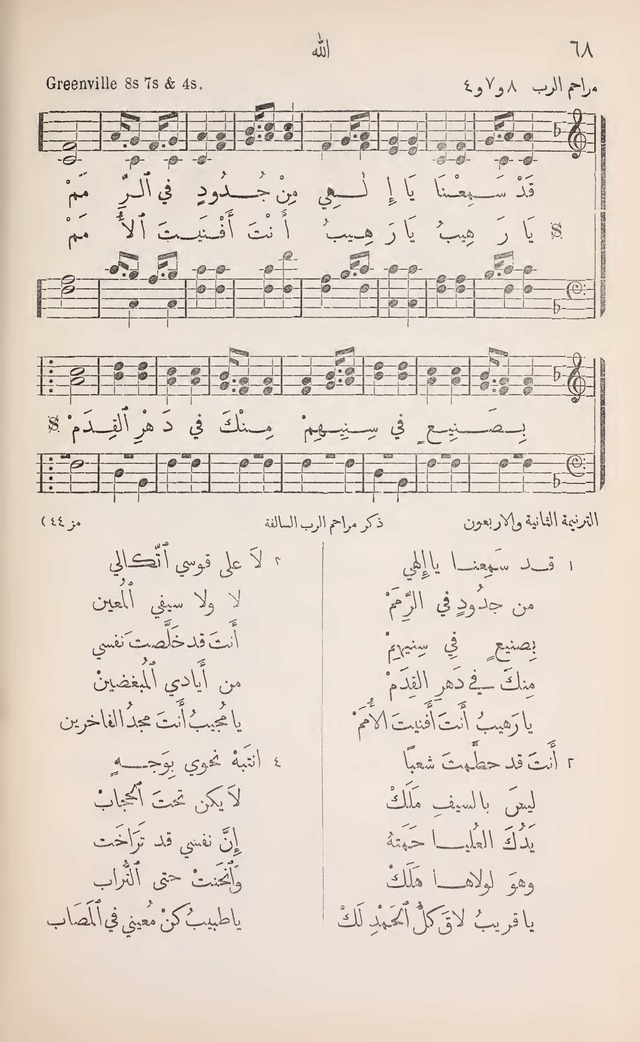 ٦٨
الله
مراحم الرب ٨ و٧ و٤
Greenville 8s 7s & 4s.
قَدْ سَمِعْنَا يَا إِلٰهِي مِنْ جُدُودٍ فِي ٱلرِّمَمْ
يَا رَهِيبُ يَا رَهِيبُ أَنْتَ أَفْنَيْتَ ٱلأُمَمْ
بِصَنِيعٍ فِي سِنِيهِمْ مِنْكَ فِي دَهْرِ ٱلقِدَمْ
الترنيمة الثانية والاربعون
ذكر مراحم الرب السالفة
مز ٤٤ )
١ قد سَمِعنا يا إِلهي
من جدُودٍ في الرِّمَمْ
بِصنيعٍ في سِنيهِمْ
مِنكَ في دَهرِ القِدَمْ
يا رَهيبُ أَنتَ أَفنيتَ الأُمَمْ
٢ أَنتَ قد حطَّمتَ شعبًا
ليسَ بالسيفِ مَلَكْ
يَدُكَ العُليا حَمَتهُ
وهوَ لولاها هَلَكْ
يا قريبُ لاقَ كلُّ ٱلحَمدِ لَكْ
٣ لَا على قوسي ٱتّكالي
لا ولا سيفي ٱلمُعين
أَنتَ قد خَلَّصتَ نَفسي
من أَيادي ٱلمُبغضينْ
يا مُجيبُ أَنتَ مجدُ الفاخرين
٤ انتَبِهْ نحوي بِوَجهٍ
لَا يكن تحتَ ٱلحجابْ
إِنَّ نفسي قد تَرَاخَت
وَٱنحَنتْ حتى ٱلتُّراب
يا طبيبُ كنْ مُعيني في ٱلمَصَاب